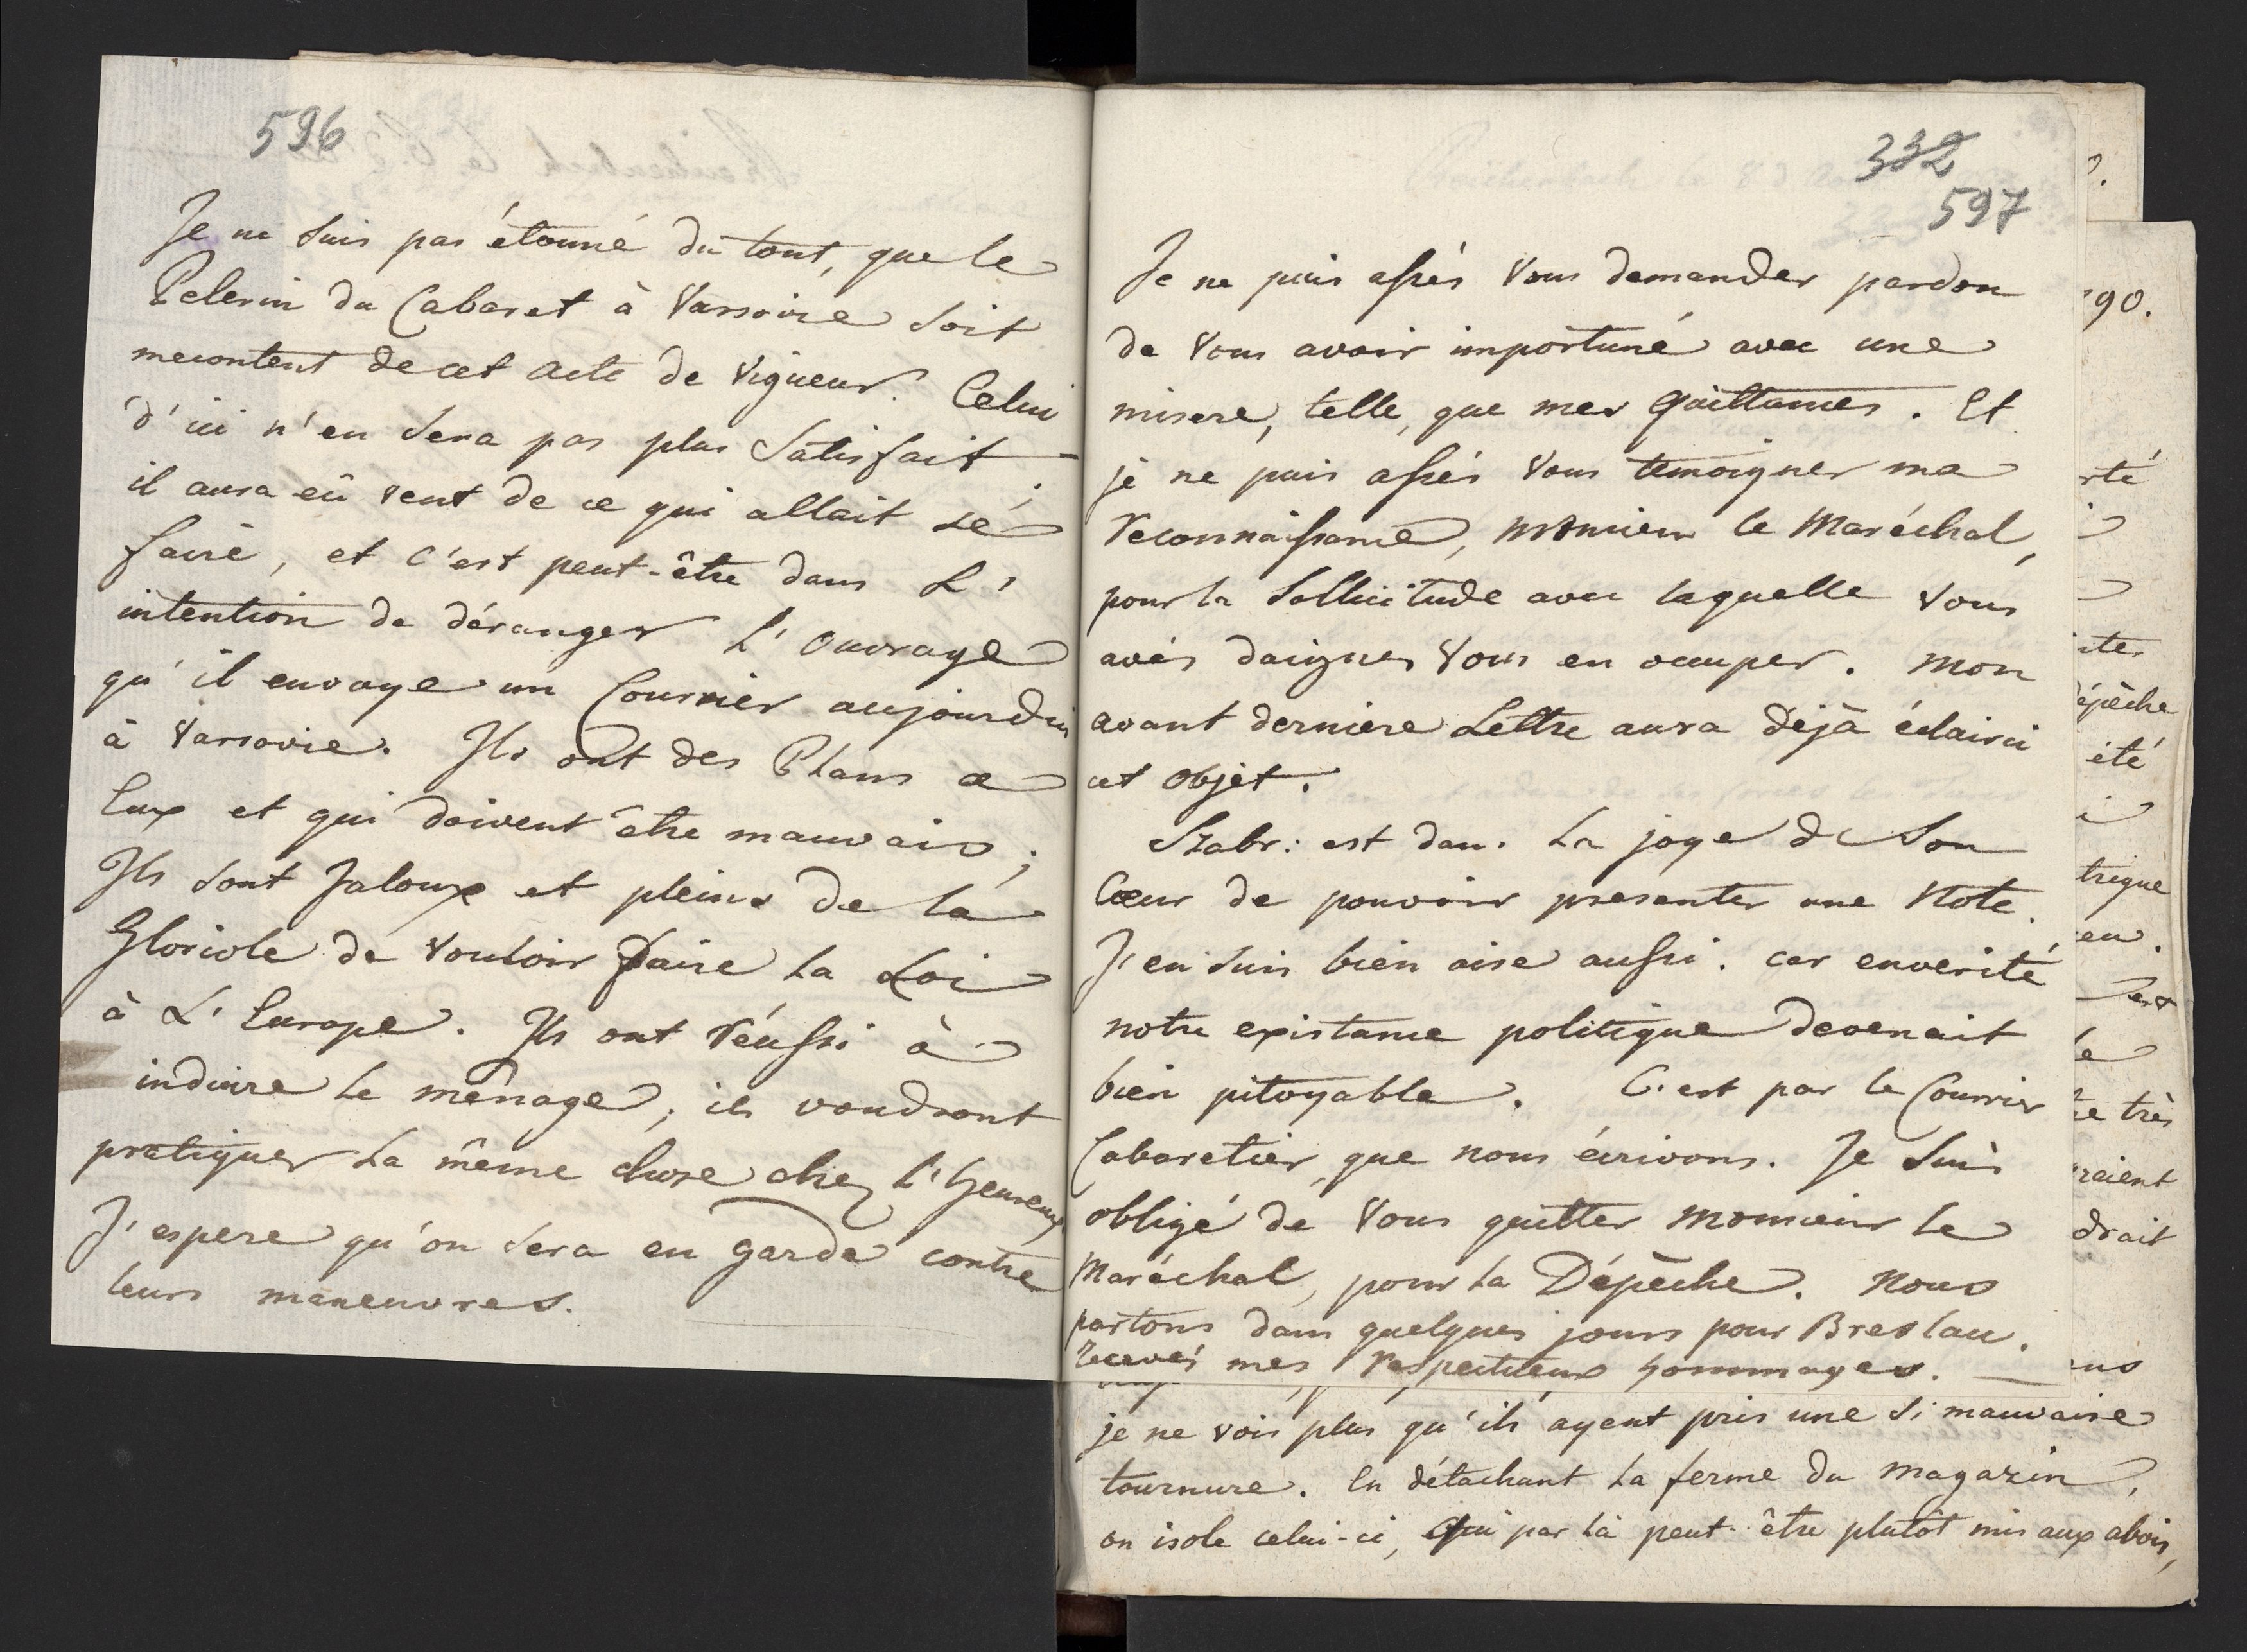 596
Je ne suis pas étonné du tout, que le
Pelerin du Cabaret à Varsovie soit
mecontent de cet acte de vigueur. Celui
d'ici n'en sera pas plus satisfait –
il aura eû vent de ce qui allait se
faire, et c'est peut-être dans L'
intention de déranger L'ouvrage
qu'il envoye un Courrier aujourdhui
à Varsovie. Ils ont des Plans a
Eux et qui doivent être mauvais;
Ils sont Jaloux et pleins de la
Gloriole de vouloir faire la Loi
à L'Europe. Ils ont réussi à
induire le menage; ils voudront
pratiquer la même chose chez l'heureux
J'espere qu'on sera en garde contre
leurs maneuvres.
332
597
Je ne puis assés Vous demander pardon
de Vous avoir importuné avec une
misere, telle, que mes quittances. Et
je ne puis assés Vous temoigner ma
reconnaissance, Monsieur le Maréchal,
pour la Sollicitude avec laquelle Vous
avés daignés Vous en occuper. Mon
avant derniere Lettre aura dèjà éclairci
cet objet.
Szabr: est dans la joye de Son
Cœur de pouvoir presenter une Note.
J'en suis bien aise aussi. car enverité
notre existance politique devenait
bien pitoyable. C'est par le Courrier
Cabaretier, que nous écrivons. Je suis
obligé de Vous quitter Monsieur le
Maréchal, pour la Dépêche. Nous
partons dans quelques jours pour Breslau.
Recevés mes respectueux hommages. —
je ne vois plus qu'ils ayent pris une si mauvaise
tournure. En détachant la ferme du magazin,
on isole celui-ci, qui par là peut-être plutôt mis aux abois,
90.
rté
ites
épêche
été
trique
en.
le
te très
raient
drait